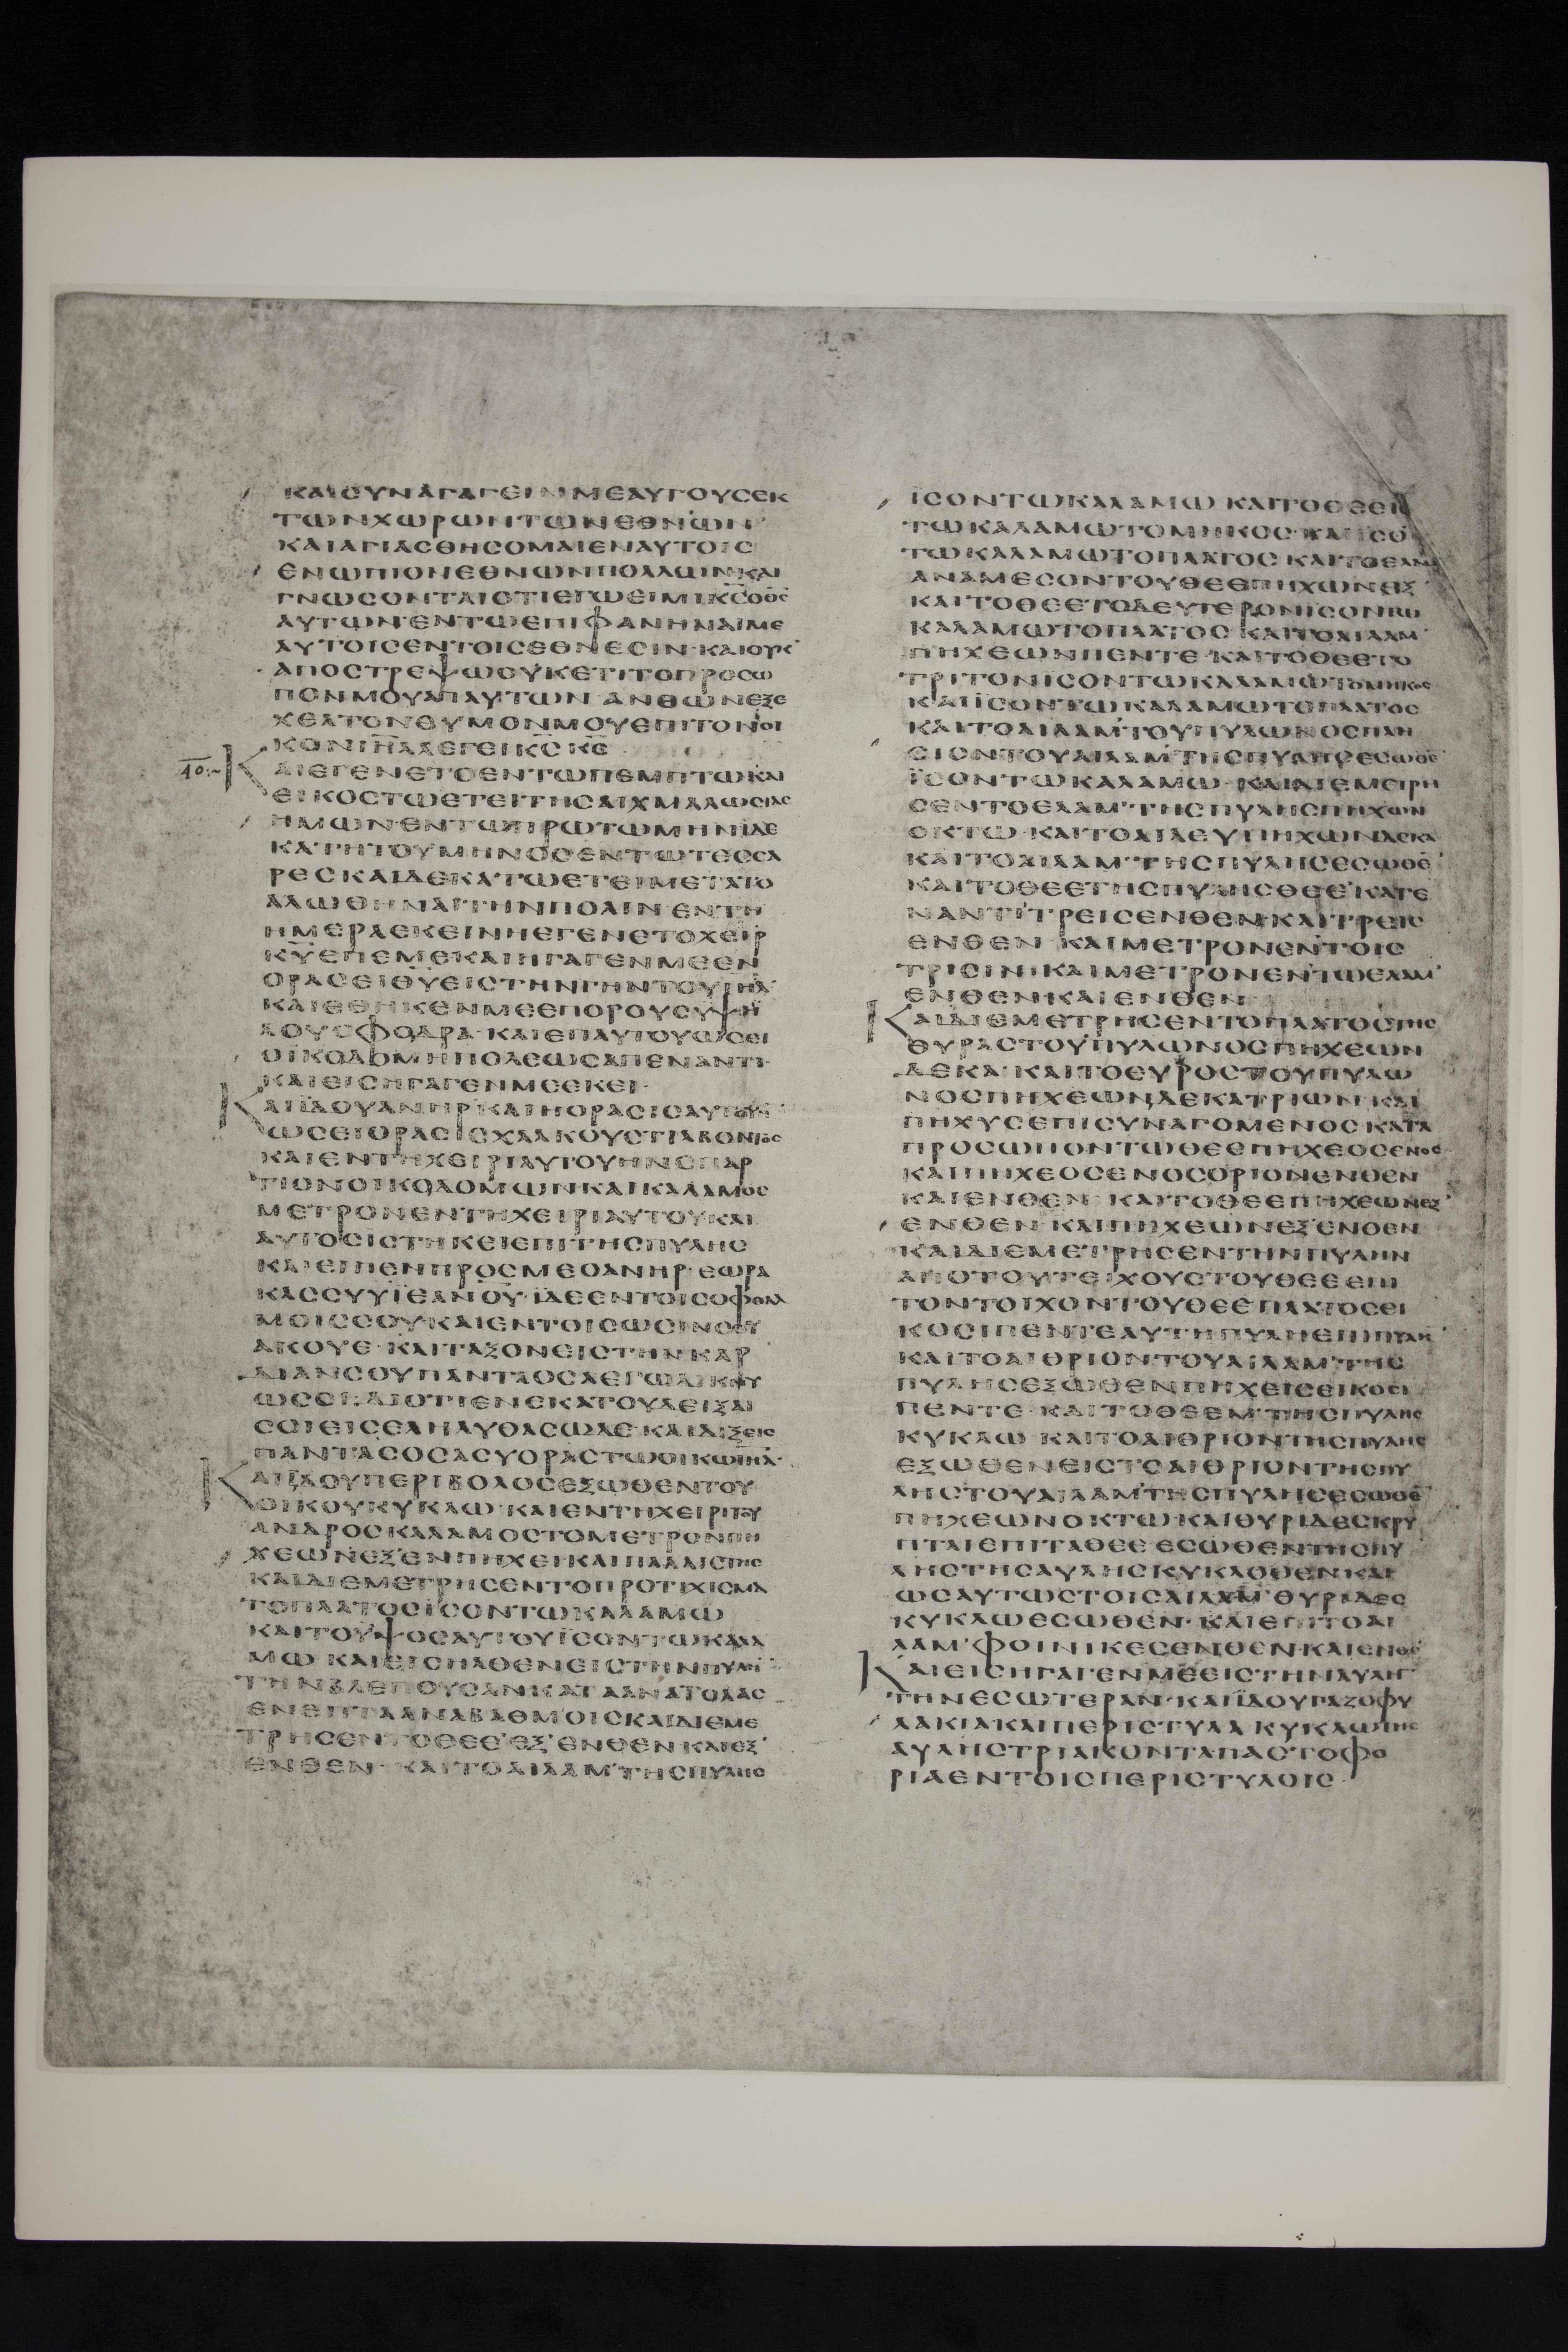 ΚΑΙΣΥΝΑΓΑΓΕΙΝΜΕΑΥΤΟΥΣΕΚ
ΤΩΝΧΩΡΩΝΤΩΝΕΘΝΩΝ
ΚΑΙΑΓΙΑΣΘΗΣΟΜΑΙΕΝΑΥΤΟΙΣ
ΕΝΩΠΙΟΝΕΘΝΩΝΠΟΛΛΩΝ·ΚΑΙ
ΓΝΩΣΟΝΤΑΙΟΤΙΕΓΩΕΙΜΙΚ̅Σ̅ΟΘ̅Σ̅
ΑΥΤΩΝ·ΕΝΤΩΕΠΙΦΑΝΗΝΑΙΜΕ
ΑΥΤΟΙΣΕΝΤΟΙΣΕΘΝΕΣΙΝ·ΚΑΙΟΥΚ
ΑΠΟΣΤΡΕΨΩΟΥΚΕΤΙΤΟΠΡΟΣΩ
ΠΟΝΜΟΥΑΠΑΥΤΩΝ·ΑΝΘΩΝΕΞΕ
ΧΕΑΤΟΝΘΥΜΟΝΜΟΥΕΠΙΤΟΝΟΙ
ΚΟΝΙ̅Η̅Λ̅ΛΕΓΕΙΚ̅Σ̅Κ̅Σ̅
40:~ ΚΑΙΕΓΕΝΕΤΟΕΝΤΩΠΕΜΠΤΩΚΑΙ
ΕΙΚΟΣΤΩΕΤΕΙΤΗΣΑΙΧΜΑΛΩΣΙΑΣ
ΗΜΩΝ·ΕΝΤΩΠΡΩΤΩΜΗΝΙΔΕ
ΚΑΤΗΤΟΥΜΗΝΟΣΕΝΤΩΤΕΣΣΑ
ΡΕΣΚΑΙΔΕΚΑΤΩΕΤΕΙΜΕΤΑΤΟ
ΑΛΩΘΗΝΑΙΤΗΝΠΟΛΙΝ·ΕΝΤΗ
ΗΜΕΡΑΕΚΕΙΝΗΕΓΕΝΕΤΟΧΕΙΡ
Κ̅Υ̅ΕΠΕΜΕΚΑΙΗΓΑΓΕΝΜΕΕΝ
ΟΡΑΣΕΙΘ̅Υ̅ΕΙΣΤΗΝΓΗΝΤΟΥΙ̅Η̅Λ̅
ΚΑΙΕΘΗΚΕΝΜΕΕΠΟΡΟΥΣΥΨΗ
ΛΟΥΣΦΟΔΡΑ·ΚΑΙΕΠΑΥΤΟΥΩΣΕΙ
ΟΙΚΟΔΟΜΗΠΟΛΕΩΣΑΠΕΝΑΝΤΙ·
ΚΑΙΕΙΣΗΓΑΓΕΝΜΕΕΚΕΙ·
ΚΑΙΪΔΟΥΑΝΗΡ·ΚΑΙΗΟΡΑΣΙΣΑΥΤΟΥΗΝ
ΩΣΕΙΟΡΑΣΙΣΧΑΛΚΟΥΣΤΙΛΒΟΝΤΟΣ
ΚΑΙΕΝΤΗΧΕΙΡΙΑΥΤΟΥΗΝΣΠΑΡ
ΤΙΟΝΟΙΚΟΔΟΜΩΝΚΑΙΚΑΛΑΜΟΣ
ΜΕΤΡΟΝΕΝΤΗΧΕΙΡΙΑΥΤΟΥΚΑΙ
ΑΥΤΟΣΙΣΤΗΚΕΙΕΠΙΤΗΣΠΥΛΗΣ
ΚΑΙΕΙΠΕΝΠΡΟΣΜΕΟΑΝΗΡ·ΕΩΡΑ
ΚΑΣΣΥΥΪΕΑΝΟΥ·ΪΔΕΕΝΤΟΙΣΟΦΘΑΛ
ΜΟΙΣΣΟΥΚΑΙΕΝΤΟΙΣΩΣΙΝΣΟΥ
ΑΚΟΥΕ·ΚΑΙΤΑΞΟΝΕΙΣΤΗΝΚΑΡ
ΔΙΑΝΣΟΥΠΑΝΤΑΟΣΑΕΓΩΔΙΚΝΥ
ΩΣΟΙ·ΔΙΟΤΙΕΝΕΚΑΤΟΥΔΕΙΞΑΙ
ΣΟΙΕΙΣΕΛΗΛΥΘΑΣΩΔΕ·ΚΑΙΔΙΞΕΙΣ
ΠΑΝΤΑΣΟΣΑΣΥΟΡΑΣΤΩΟΙΚΩΙ̅Η̅Λ̅·
ΚΑΙΪΔΟΥΠΕΡΙΒΟΛΟΣΕΞΩΘΕΝΤΟΥ
ΟΙΚΟΥΚΥΚΛΩ·ΚΑΙΕΝΤΗΧΕΙΡΙΤΟΥ
ΑΝΔΡΟΣΚΑΛΑΜΟΣΤΟΜΕΤΡΟΝΠΗ
ΧΕΩΝΕΞΕΝΠΗΧΕΙΚΑΙΠΑΛΑΙΣΤΗΣ
ΚΑΙΔΙΕΜΕΤΡΗΣΕΝΤΟΠΡΟΤΙΧΙΣΜΑ
ΤΟΠΛΑΤΟΣΪΣΟΝΤΩΚΑΛΑΜΩ
ΚΑΙΤΟΥΨΟΣΑΥΤΟΥΪΣΟΝΤΩΚΑΛΑ
ΜΩ·ΚΑΙΕΙΣΗΛΘΕΝΕΙΣΤΗΝΠΥΛΗΝ
ΤΗΝΒΛΕΠΟΥΣΑΝΚΑΤΑΑΝΑΤΟΛΑΣ
ΕΝΕΠΤΑΑΝΑΒΑΘΜΟΙΣΚΑΙΔΙΕΜΕ
ΤΡΗΣΕΝΤΟΘΕΕ·ΕΞ·ΕΝΘΕΝΚΑΙΕΞ
ΕΝΘΕΝ·ΚΑΙΤΟΑΙΛΑΜ·ΤΗΣΠΥΛΗΣ
ΪΣΟΝΤΩΚΑΛΑΜΩ·ΚΑΙΤΟΘΕΕΙ
ΤΩΚΑΛΑΜΩΤΟΜΗΚΟΣ·ΚΑΙΙΣΟ
ΤΩΚΑΛΑΜΩΤΟΠΛΑΤΟΣ·ΚΑΙΤΟΕΛΑΜ
ΑΝΑΜΕΣΟΝΤΟΥΘΕΕΠΗΧΩΝΕΞ
ΚΑΙΤΟΘΕΕΤΟΔΕΥΤΕΡΟΝΙΣΟΝΤΩ
ΚΑΛΑΜΩΤΟΠΛΑΤΟΣ·ΚΑΙΤΟΑΙΛΑΜ
ΠΗΧΕΩΝΠΕΝΤΕ·ΚΑΙΤΟΘΕΕΤΟ
ΤΡΙΤΟΝΙΣΟΝΤΩΚΑΛΑΜΩΤΟΜΗΚΟΣ
ΚΑΙΪΣΟΝΤΩΚΑΛΑΜΩΤΟΠΛΑΤΟΣ
ΚΑΙΤΟΑΙΛΑΜΤΟΥΠΥΛΩΝΟΣΠΛΗ
ΣΙΟΝΤΟΥΑΙΛΑΜ·ΤΗΣΠΥΛΗΣΕΣΩΘΕ
ΪΣΟΝΤΩΚΑΛΑΜΩ·ΚΑΙΔΙΕΜΕΤΡΗ
ΣΕΝΤΟΕΛΑΜ·ΤΗΣΠΥΛΗΣΠΗΧΩΝ
ΟΚΤΩ·ΚΑΙΤΟΑΙΛΕΥΠΗΧΩΝΔΕΚΑ
ΚΑΙΤΟΑΙΛΑΜ·ΤΗΣΠΥΛΗΣΕΣΩΘΕ
ΚΑΙΤΟΘΕΕΤΗΣΠΥΛΗΣΘΕΕ·ΚΑΤΕ
ΝΑΝΤΙΤΡΕΙΣΕΝΘΕΝ·ΚΑΙΤΡΕΙΣ
ΕΝΘΕΝ·ΚΑΙΜΕΤΡΟΝΕΝΤΟΙΣ
ΤΡΙΣΙΝ·ΚΑΙΜΕΤΡΟΝΕΝΤΩΕΛΑΜ
ΕΝΘΕΝ·ΚΑΙΕΝΘΕΝ
ΚΑΙΔΙΕΜΕΤΡΗΣΕΝΤΟΠΛΑΤΟΣΤΗΣ
ΘΥΡΑΣΤΟΥΠΥΛΩΝΟΣΠΗΧΕΩΝ
ΔΕΚΑ·ΚΑΙΤΟΕΥΡΟΣΤΟΥΠΥΛΩ
ΝΟΣΠΗΧΕΩΝΔΕΚΑΤΡΙΩΝ·ΚΑΙ
ΠΗΧΥΣΕΠΙΣΥΝΑΓΟΜΕΝΟΣΚΑΤΑ
ΠΡΟΣΩΠΟΝΤΩΘΕΕΠΗΧΕΟΣΕΝΟΣ
ΚΑΙΠΗΧΕΟΣΕΝΟΣΟΡΙΟΝΕΝΘΕΝ
ΚΑΙΕΝΘΕΝ·ΚΑΙΤΟΘΕΕΠΗΧΕΩΝΕΞ
ΕΝΘΕΝ·ΚΑΙΠΗΧΕΩΝΕΞΕΝΘΕΝ
ΚΑΙΔΙΕΜΕΤΡΗΣΕΝΤΗΝΠΥΛΗΝ
ΑΠΟΤΟΥΤΕΙΧΟΥΣΤΟΥΘΕΕΕΠΙ
ΤΟΝΤΟΙΧΟΝΤΟΥΘΕΕΠΛΑΤΟΣΕΙ
ΚΟΣΙΠΕΝΤΕΑΥΤΗΠΥΛΗΕΠΙΠΥΛΗ
ΚΑΙΤΟΑΙΘΡΙΟΝΤΟΥΑΙΛΑΜ·ΤΗΣ
ΠΥΛΗΣΕΞΩΘΕΝΠΗΧΕΙΣΕΙΚΟΣΙ
ΠΕΝΤΕ·ΚΑΙΤΟΘΕΕΜ·ΤΗΣΠΥΛΗΣ
ΚΥΚΛΩ·ΚΑΙΤΟΑΙΘΡΙΟΝΤΗΣΠΥΛΗΣ
ΕΞΩΘΕΝΕΙΣΤΟΑΙΘΡΙΟΝΤΗΣΠΥ
ΛΗΣΤΟΥΑΙΛΑΜ·ΤΗΣΠΥΛΗΣΕΣΩΘΕ
ΠΗΧΕΩΝΟΚΤΩ·ΚΑΙΘΥΡΙΔΕΣΚΡΥ
ΠΤΑΙΕΠΙΤΑΘΕΕ·ΕΣΩΘΕΝΤΗΣΠΥ
ΛΗΣΤΗΣΑΥΛΗΣΚΥΚΛΟΘΕΝ·ΚΑΙ
ΩΣΑΥΤΩΣΤΟΙΣΑΙΛΑΜ·ΘΥΡΙΔΕΣ
ΚΥΚΛΩΕΣΩΘΕΝ·ΚΑΙΕΠΙΤΟΑΙ
ΛΑΜ·ΦΟΙΝΙΚΕΣΕΝΘΕΝ·ΚΑΙΕΝΘΕ
ΚΑΙΕΙΣΗΓΑΓΕΝΜΕΕΙΣΤΗΝΑΥΛΗ
ΤΗΝΕΣΩΤΕΡΑΝ·ΚΑΙΪΔΟΥΓΑΖΟΦΥ
ΛΑΚΙΑΚΑΙΠΕΡΙΣΤΥΛΑΚΥΚΛΩΤΗΣ
ΑΥΛΗΣΤΡΙΑΚΟΝΤΑΠΑΣΤΟΦΟ
ΡΙΑΕΝΤΟΙΣΠΕΡΙΣΤΥΛΟΙΣ·